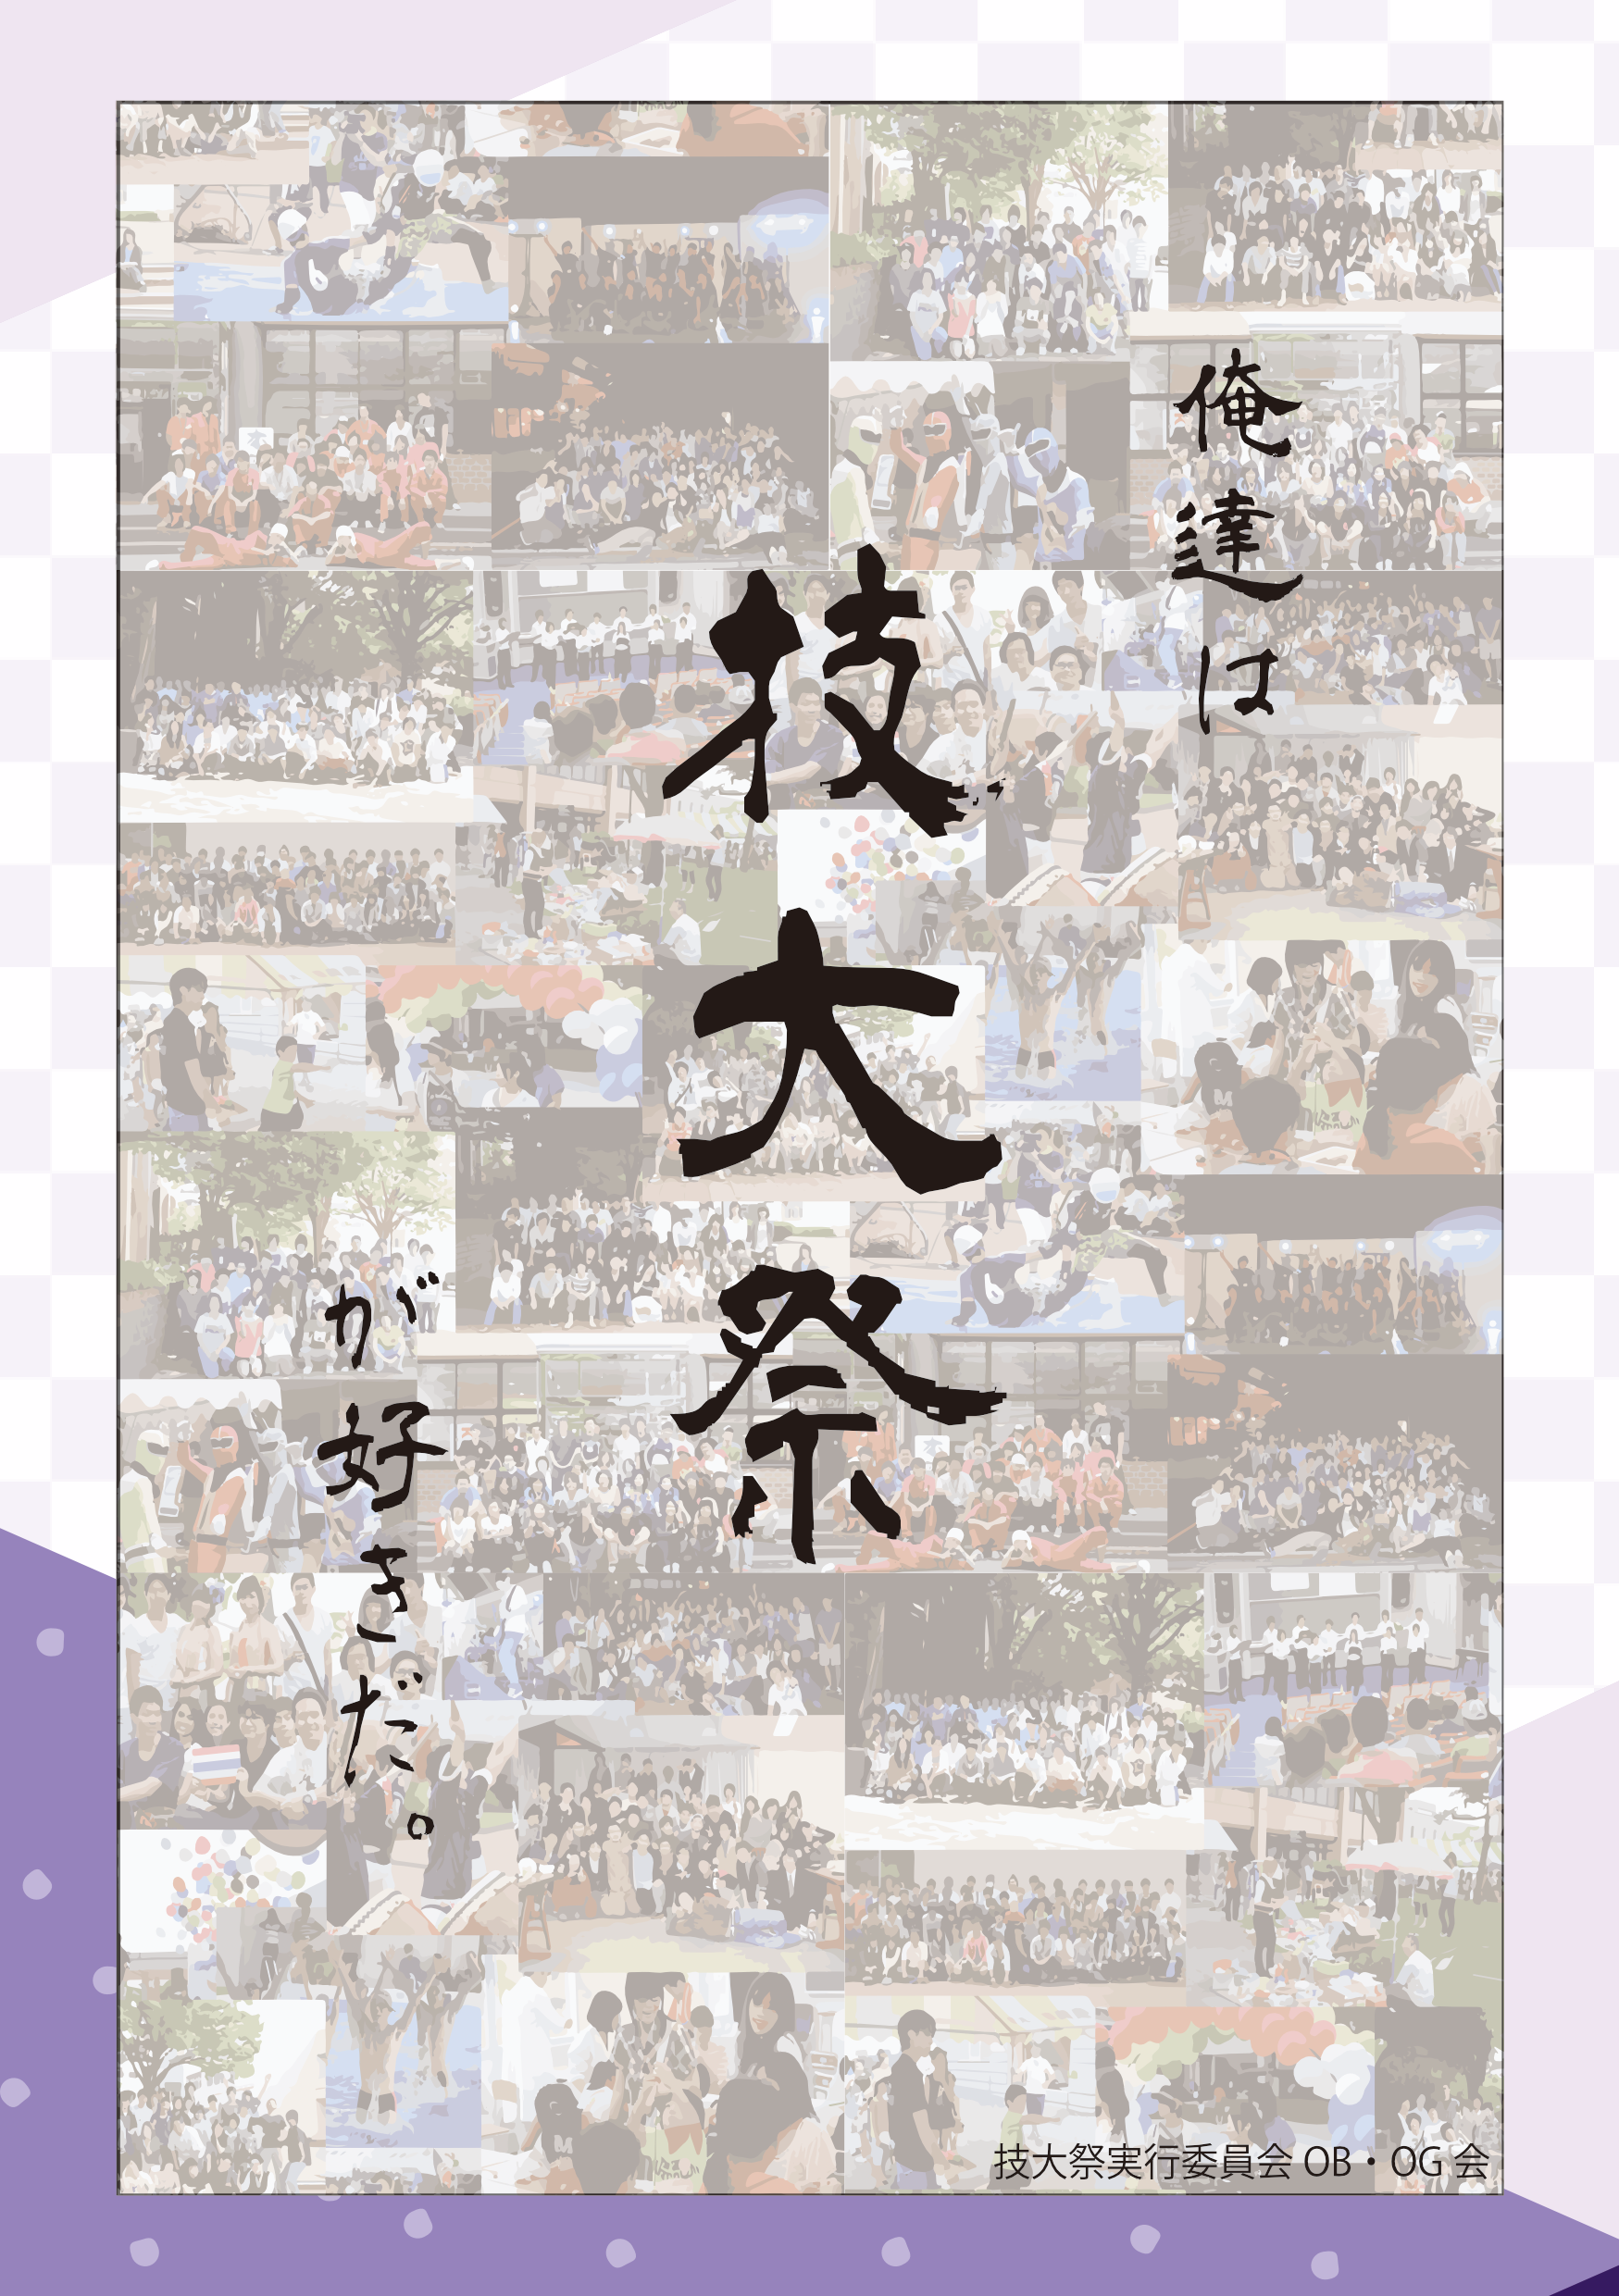 俺達は
技大祭
が好きだ。
技大祭実行委員会 OB・OG 会